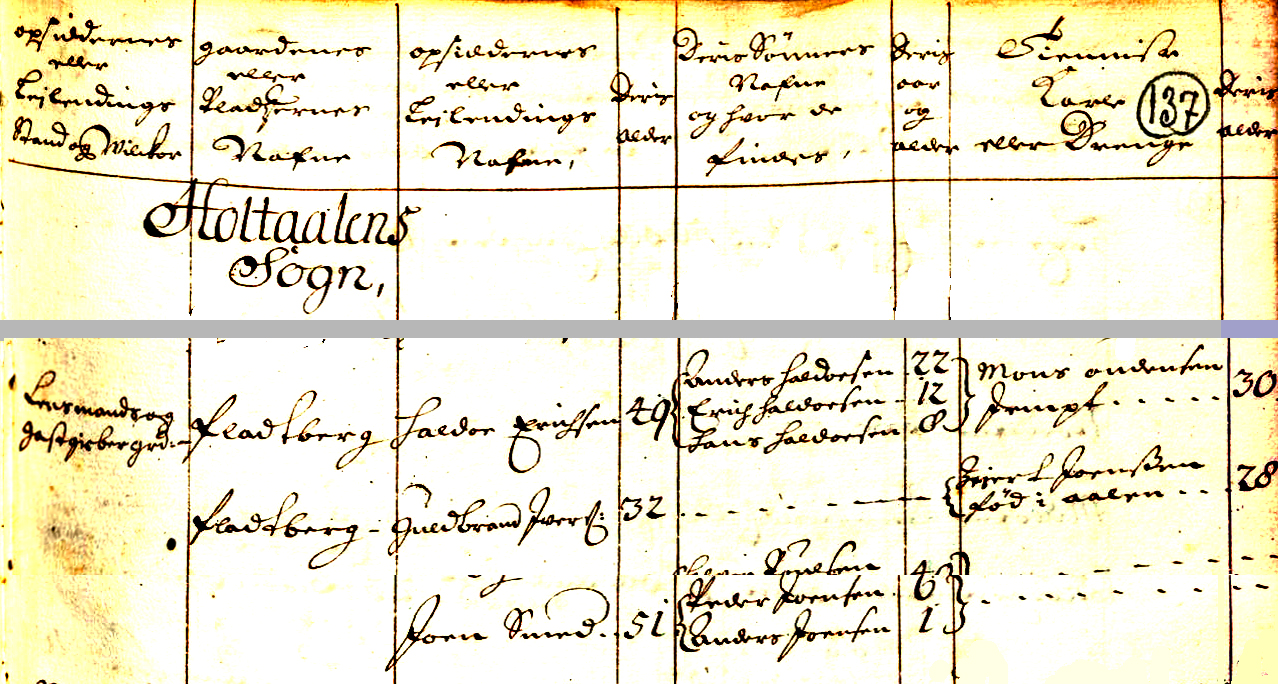 opsiddernes
eller
Leilendings
Stand og Wilckor
gaardenes
eller
Pladzernes
Nafne
opsiddernes
eller
Leilendings
Nafne,
Deris
alder
Deris Sönners
Nafne
og hvor de
findes,
Deris
aar
og
alder
Tienniste
Karle
eller Drenge
137
Deris
alder
Holtaalens
Sogn,
Lensmands og
gastgiebergrd:
fladtberg
haldor Erichsen
49
Anders haldorsen 22
Erich haldorsen 12
hans haldorsen 8
Mons andersen
30
fladtberg
Guldbrand Iverß:
32
Joensen
fød i aalen
28
Joen Smed
51
Peder Joensen 6
Anders Joensen 1